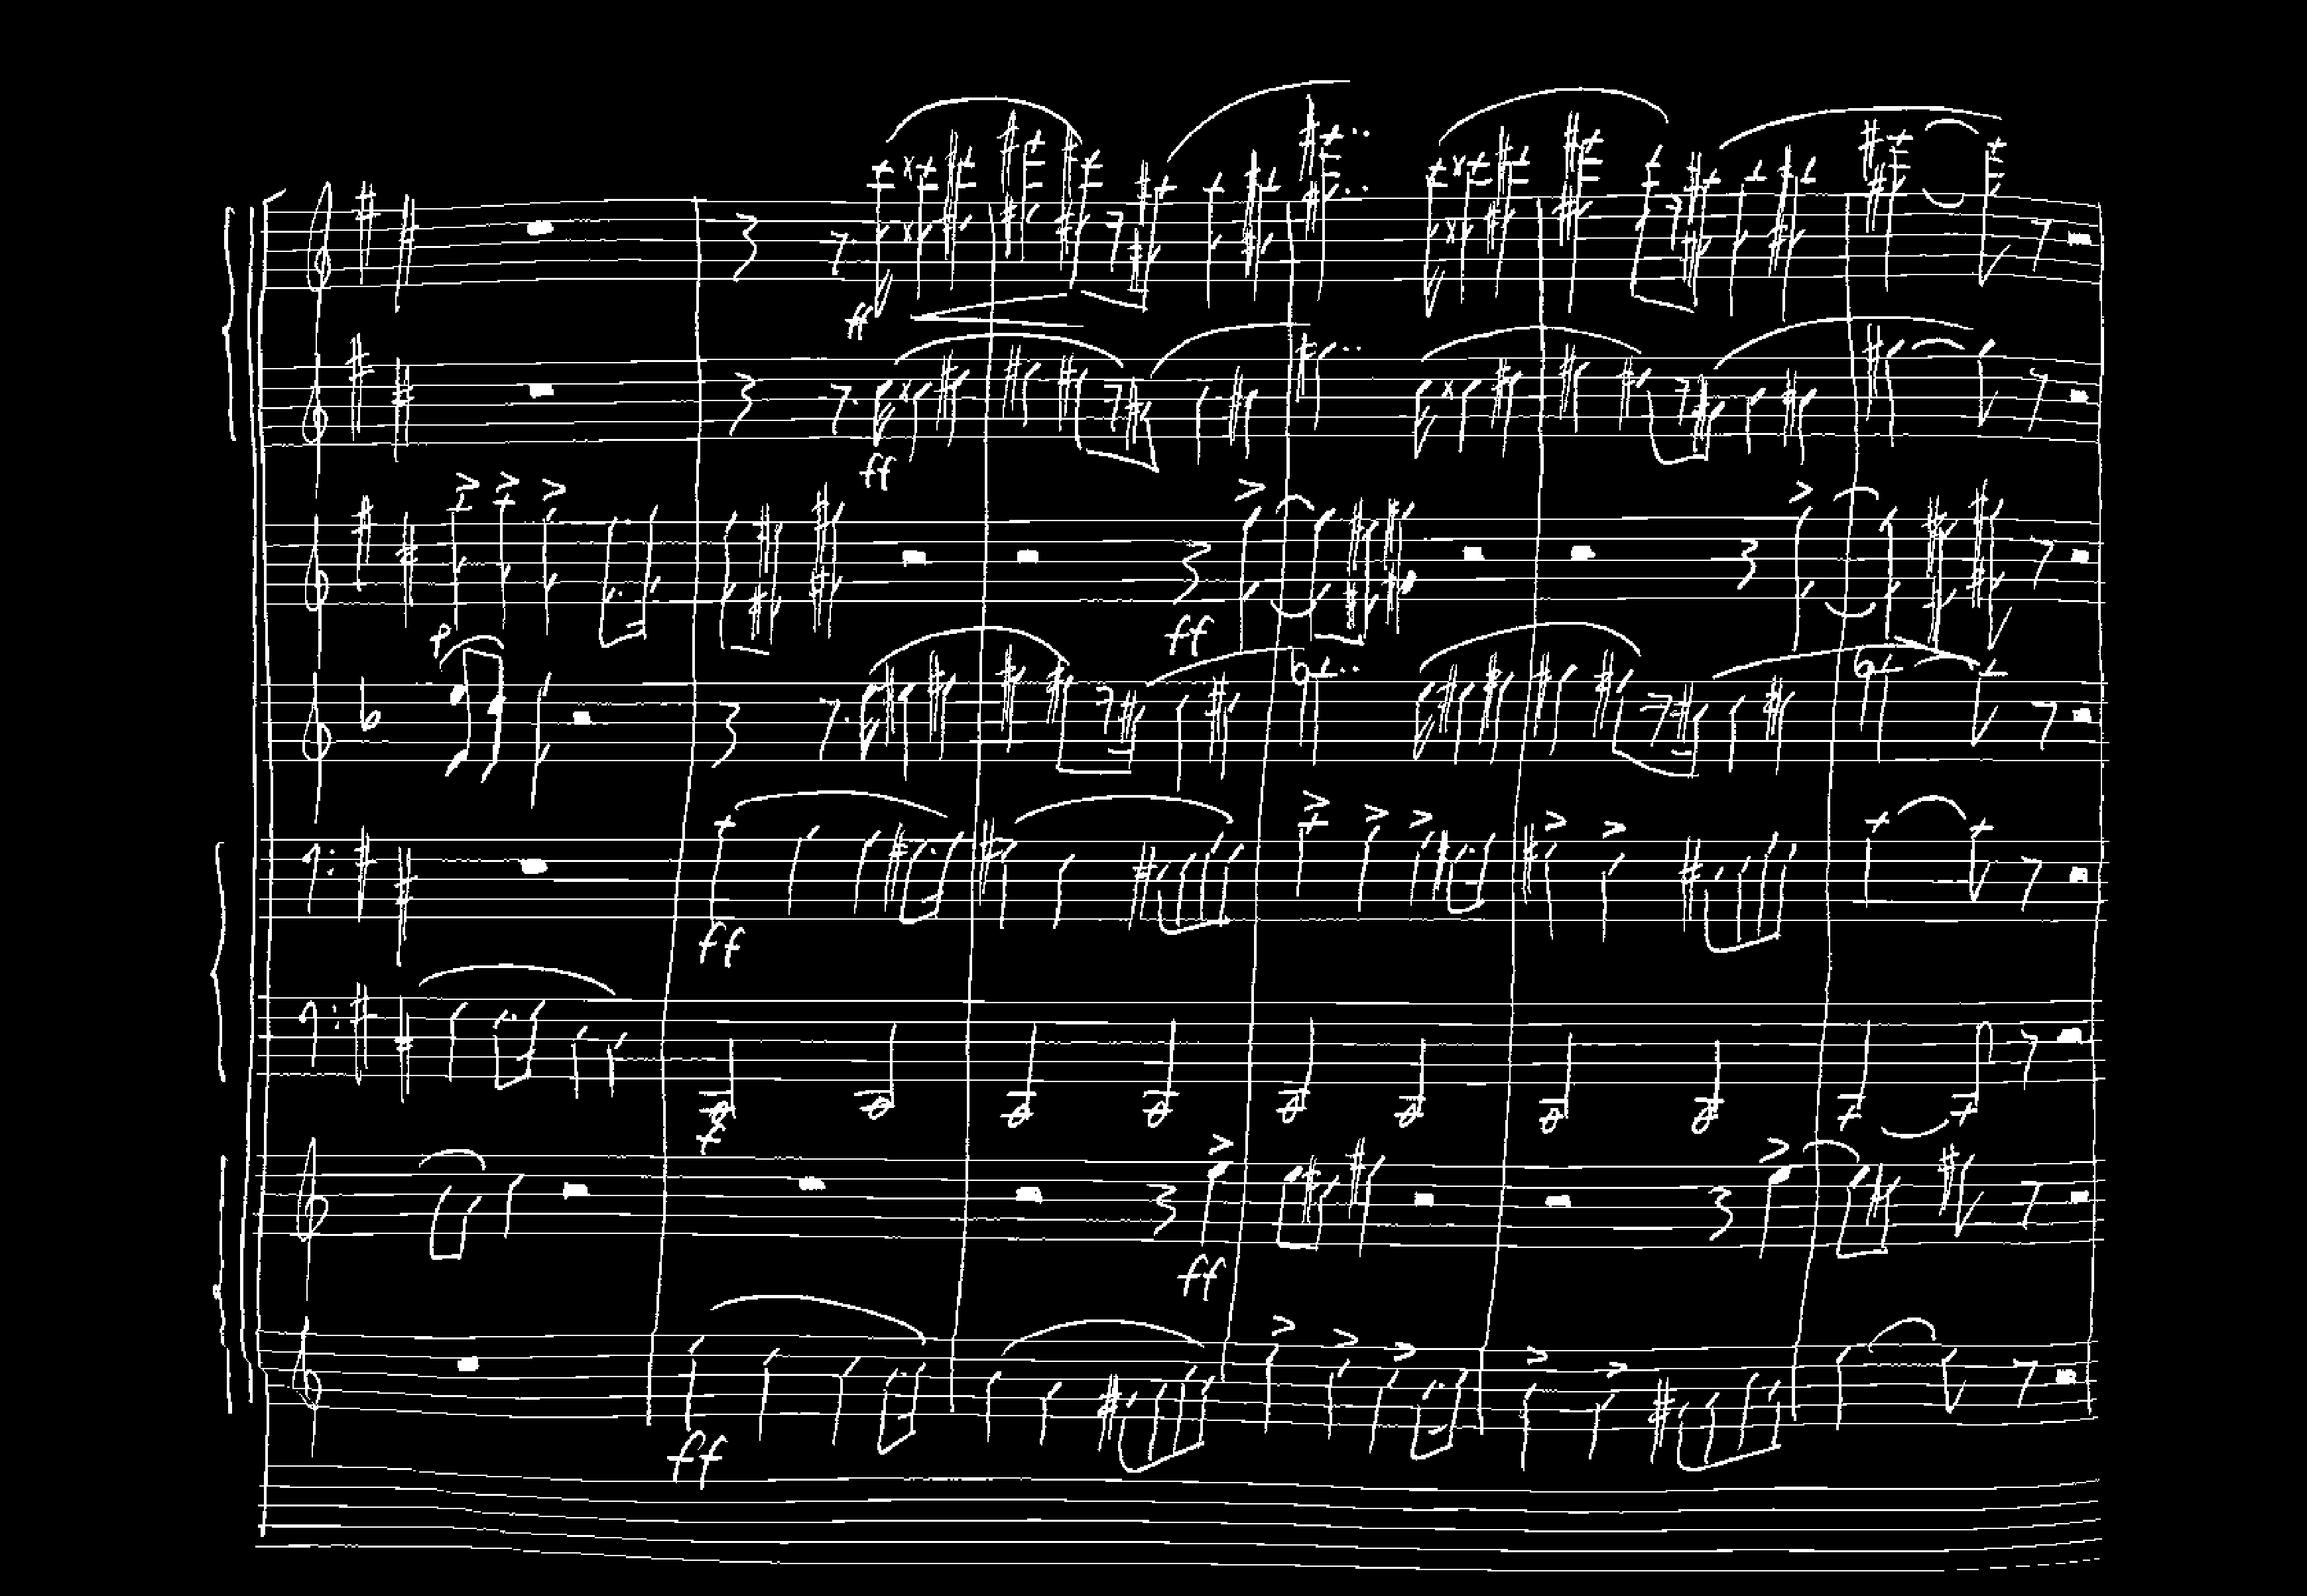 ff
ff
ff
p
ff
ff
ff